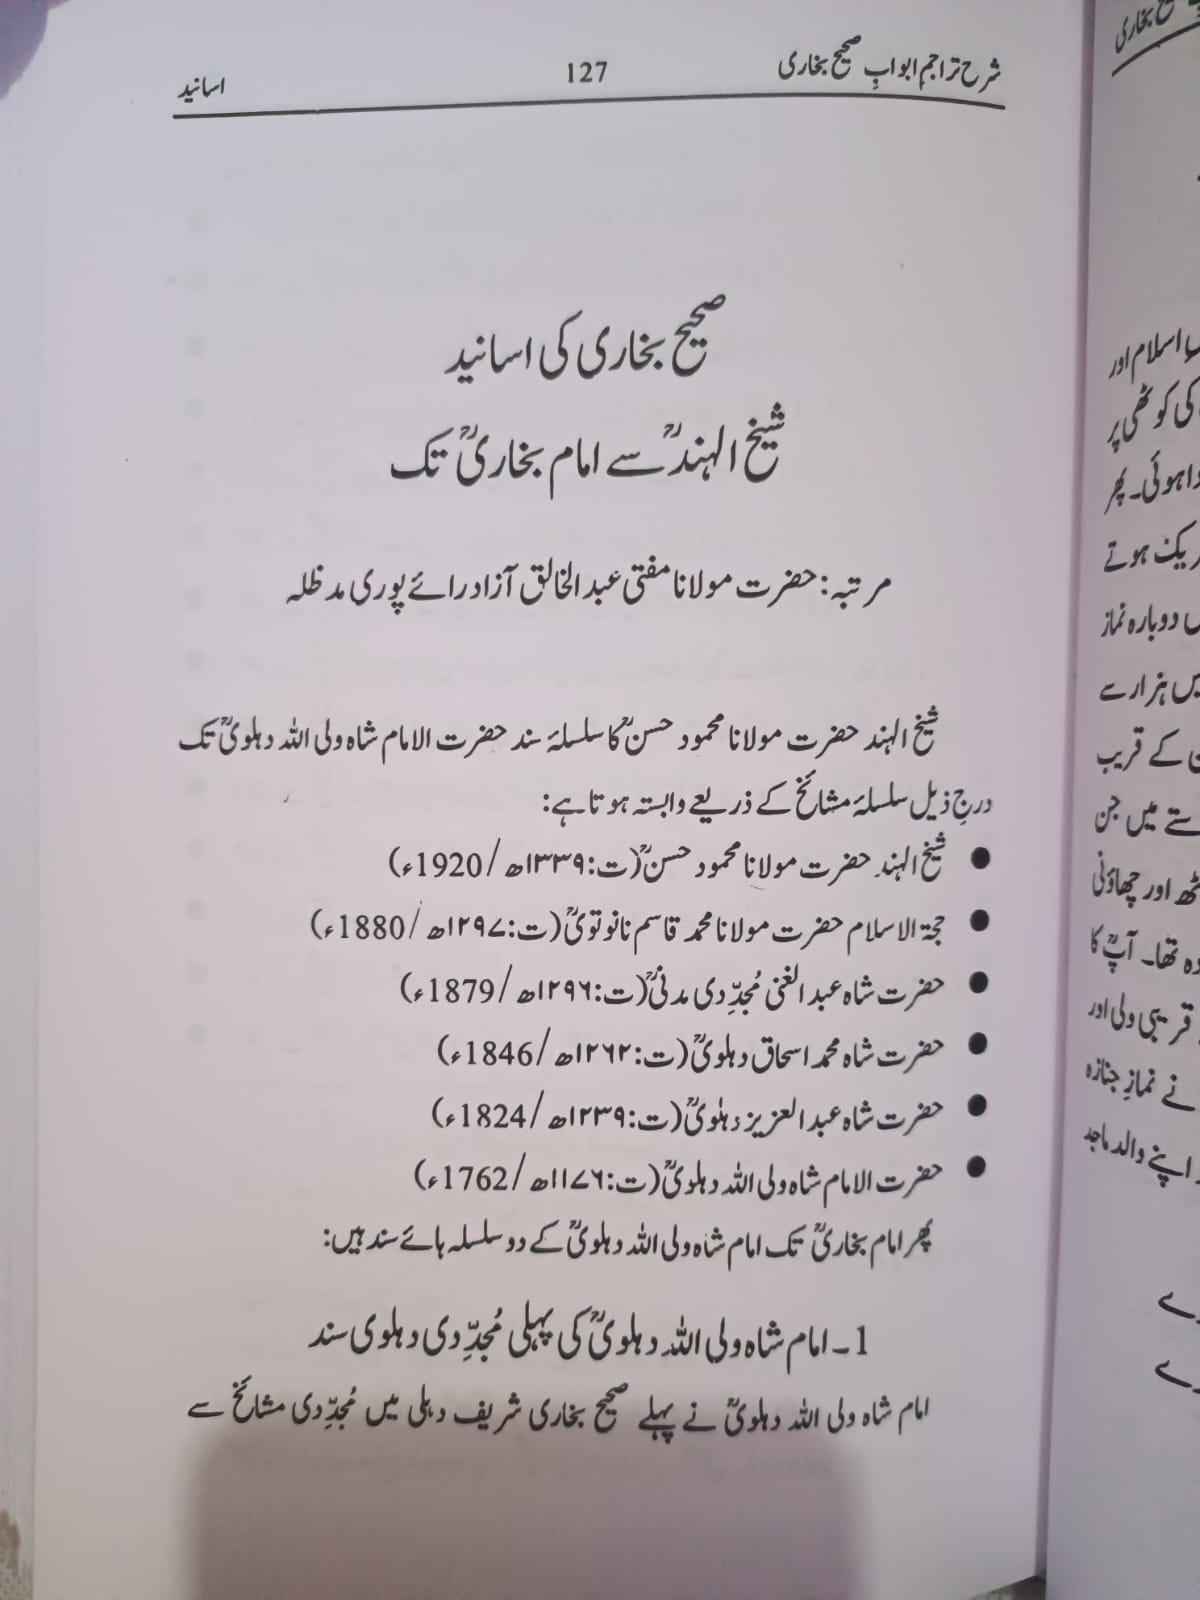 شرح تراجم ابوابِ صحیح بخاری 127 اسانید
صحیح بخاری کی اسانید
شیخ الہندؒ سے امام بخاریؒ تک
مرتبہ: حضرت مولانا مفتی عبدالخالق آزاد رائے پوری مدظلہ
شیخ الہند حضرت مولانا محمود حسنؒ کا سلسلۂ سند حضرت الامام شاہ ولی اللہ دہلویؒ تک
درجِ ذیل سلسلۂ مشائخ کے ذریعے وابستہ ہوتا ہے:
● شیخ الہند حضرت مولانا محمود حسنؒ (ت: ۱۳۳۹ھ/1920ء)
● حجۃ الاسلام حضرت مولانا محمد قاسم نانوتویؒ (ت: ۱۲۹۷ھ/1880ء)
● حضرت شاہ عبدالغنی مُجدِّدی مدنیؒ (ت: ۱۲۹۶ھ/1879ء)
● حضرت شاہ محمد اسحاق دہلویؒ (ت: ۱۲۶۲ھ/1846ء)
● حضرت شاہ عبدالعزیز دہلویؒ (ت: ۱۲۳۹ھ/1824ء)
● حضرت الامام شاہ ولی اللہ دہلویؒ (ت: ۱۱۷۶ھ/1762ء)
پھر امام بخاریؒ تک امام شاہ ولی اللہ دہلویؒ کے دو سلسلہ ہائے سند ہیں:
1۔ امام شاہ ولی اللہ دہلویؒ کی پہلی مُجدِّدی دہلوی سند
امام شاہ ولی اللہ دہلویؒ نے پہلے صحیح بخاری شریف دہلی میں مُجدِّدی مشائخ سے
بخاری
اسلام اور
کی کوٹھی پر
ہوئی۔ پھر
ہوتے
دوبارہ نماز
ہزار سے
کے قریب
میں جن
اور چھاؤنی
تھا۔ آپؒ کا
قریبی ولی اور
نے نمازِ جنازہ
اپنے والد ماجد